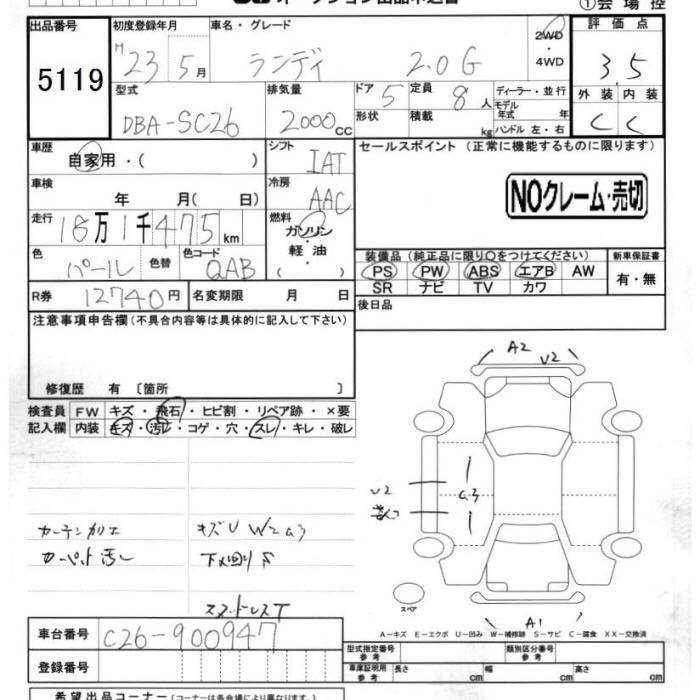 ①会場控
出品番号 初度登録年月 車名・グレード 評価点
5119 H 23 5月 ランディ 2.0G 2WD・4WD 3.5
型式 排気量 ドア 5 定員 8人 ディーラー・並行 外装 内装
DBA-SC26 2000cc 形状 積載 kg モデル年式 年 ハンドル 左・右 C C
車歴 自家用・( ) シフト IAT セールスポイント(正常に機能するものに限ります)
車検 年 月(日) 冷房 AAC NOクレーム・売切
走行 18万1千475km 燃料 ガソリン・軽油 ( )
色 パール 色替 色コード QAB 装備品(純正品に限り○をつけてください) 新車保証書
PS PW ABS エアB AW 有・無
SR ナビ TV カワ
R券 12740円 名変期限 月 日 後日品
注意事項申告欄(不具合内容等は具体的に記入して下さい)
修復歴 有 〔箇所 〕
A2 U2
検査員 FW キズ・飛石・ヒビ割・リペア跡・×要
記入欄 内装 キズ・汚レ・コゲ・穴・スレ・キレ・破レ
U2 G3
カーテン加工 キズU W2 G3
カーペット汚レ 下廻りS
スタッドレスT
スペア
A1
車台番号 C26-900947
A−キズ E−エクボ U−凹み W−補修跡 S−サビ C−腐食 XX−交換済
登録番号 型式指定番号 参考 類別区分番号 参考
車庫証明用 参考 長さ cm 幅 cm 高さ cm
希望出品コーナー